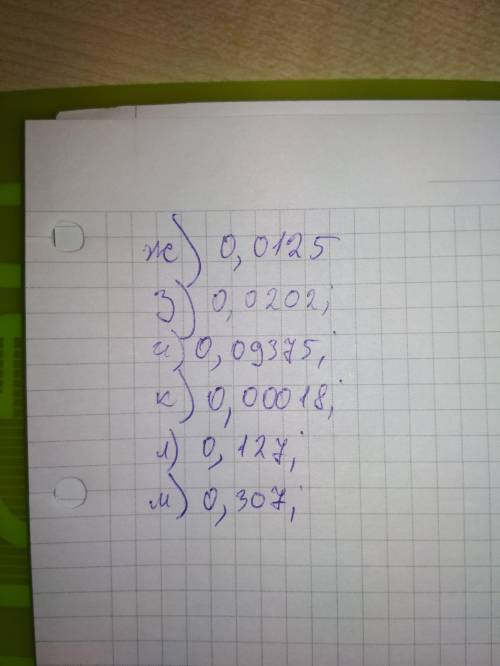 ж) 0,0125
з) 0,0202;
и) 0,09375;
к) 0,00018;
л) 0,127;
м) 0,307;